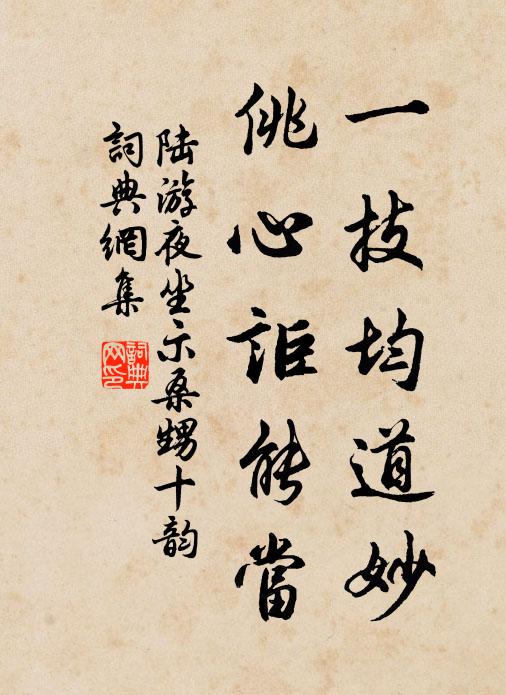 一技均道妙
佻心詎能當
陆游夜坐示桑甥十韵
詞典網集
詞典
网印